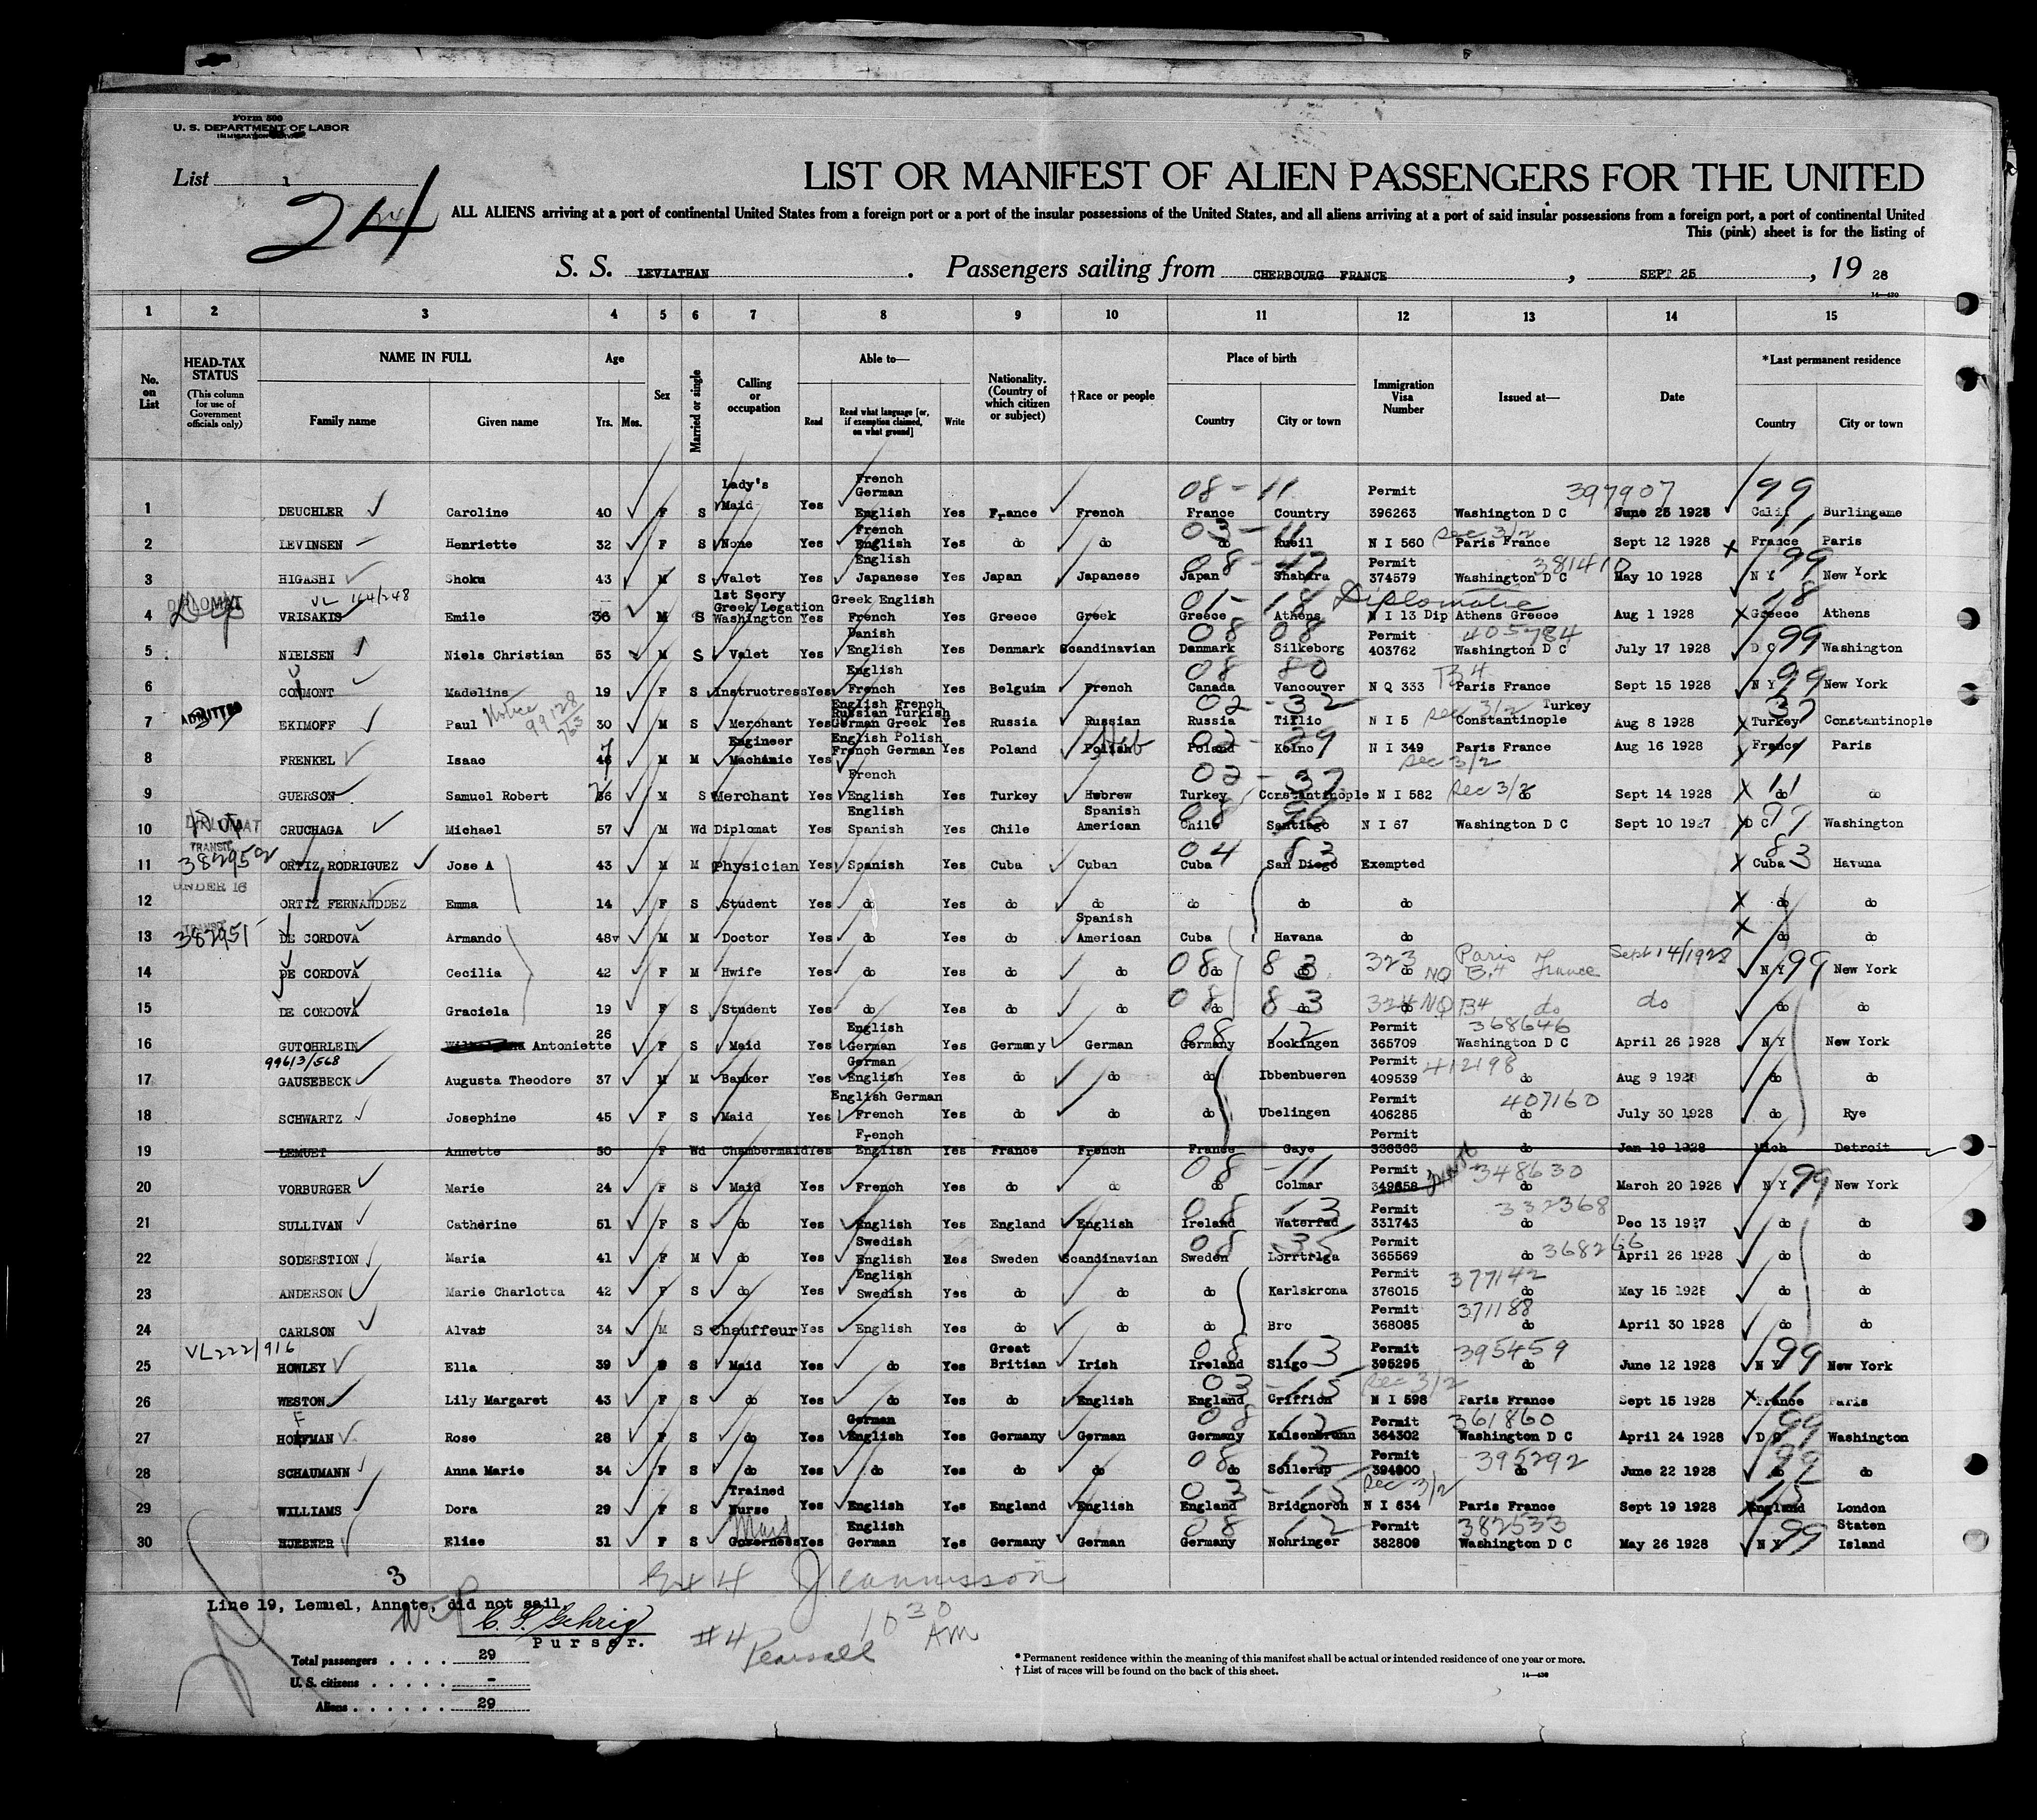 Form 500
U. S. DEPARTMENT OF LABOR
IMMIGRATION SERVICE
List 1
24
LIST OR MANIFEST OF ALIEN PASSENGERS FOR THE UNITED
ALL ALIENS arriving at a port of continental United States from a foreign port or a port of the insular possessions of the United States, and all aliens arriving at a port of said insular possessions from a foreign port, a port of continental United
This (pink) sheet is for the listing of
S. S. LEVIATHAN . Passengers sailing from CHERBOURG FRANCE , SEPT 25 , 19 28
14—430
1 2 3 4 5 6 7 8 9 10 11 12 13 14 15
No. on List HEAD-TAX STATUS (This column for use of Government officials only) NAME IN FULL Family name Given name Age Yrs. Mos. Sex Married or single Calling or occupation Able to— Read Read what language [or, if exemption claimed, on what ground] Write Nationality. (Country of which citizen or subject) †Race or people Place of birth Country City or town Immigration Visa Number Issued at— Date *Last permanent residence Country City or town
1 DEUCHLER Caroline 40 F S Lady's Maid Yes French German English Yes France French 08-11 France Country Permit 396263 397907 Washington D C June 25 1928 99 Calif Burlingame
2 LEVINSEN Henriette 32 F S None Yes French English Yes do do 03-11 do Rueil N I 560 Sec 3/2 Paris France Sept 12 1928 11 France Paris
3 HIGASHI Shoku 43 M S Valet Yes English Japanese Yes Japan Japanese 08-47 Japan Shabara Permit 374579 381410 Washington D C May 10 1928 99 N Y New York
4 DIPLOMAT VL 164/248 VRISAKIS Emile 36 M S 1st Secry Greek Legation Washington Yes Greek English French Yes Greece Greek 01-18 Greece Athens Diplomatic N I 13 Dip Athens Greece Aug 1 1928 18 Greece Athens
5 NIELSEN Niels Christian 53 M S Valet Yes Danish English Yes Denmark Scandinavian 08 08 Danmark Silkeborg Permit 403762 405784 Washington D C July 17 1928 D C 99 Washington
6 CONMONT Madeline 19 F S Instructress Yes English French Yes Belguim French 08 80 Canada Vancouver N Q 333 B4 Paris France Sept 15 1928 N Y 99 New York
7 ADMITTED EKIMOFF Paul Notice 99128/763 30 M S Merchant Yes English French Russian Turkish German Greek Yes Russia Russian 02-32 Russia Tiflio N I 5 Sec 3/2 Turkey Constantinople Aug 8 1928 37 Turkey Constantinople
8 FRENKEL Isaac 47 M M Engineer Machinic Yes English Polish French German Yes Poland Polish Heb 02-29 Poland Kolno N I 349 Sec 3/2 Paris France Aug 16 1928 11 France Paris
9 GUERSON Samuel Robert 26 M S Merchant Yes French English Yes Turkey Hebrew 02-37 Turkey Constantinople N I 582 Sec 3/2 do Sept 14 1928 11 do do
10 DIPLOMAT CRUCHAGA Michael 57 M Wd Diplomat Yes English Spanish Yes Chile Spanish American 08 96 Chile Santiago N I 67 Washington D C Sept 10 1927 D C 99 Washington
11 TRANSIT 382952 ORTIZ RODRIGUEZ Jose A 43 M M Physician Yes Spanish Yes Cuba Cuban 04 83 Cuba San Diego Exempted Cuba 83 Havana
12 UNDER 16 ORTIZ FERNANDDEZ Emma 14 F S Student Yes do Yes do do do do do do do
13 TRANSIT 382951 DE CORDOVA Armando 48 M M Doctor Yes do Yes do Spanish American Cuba Havana do do do
14 DE CORDOVA Cecilia 42 F M Hwife Yes do Yes do do 08 do 83 do 323 do NQ Paris B4 France Sept 14/1928 N Y 99 New York
15 DE CORDOVA Graciela 19 F S Student Yes do Yes do do 08 do 83 do 324 NQ B4 do do do do
16 GUTOHRLEIN Antoniette 26 F S Maid Yes English German Yes Germany German 08 12 Germany Bockingen Permit 365709 368646 Washington D C April 26 1928 N Y New York
17 99613/568 GAUSEBECK Augusta Theodore 37 M M Banker Yes German English Yes do do do Ibbenbueren Permit 409539 412198 do Aug 9 1928 do do
18 SCHWARTZ Josephine 45 F S Maid Yes English German French Yes do do do Ubelingen Permit 406285 407160 do July 30 1928 do Rye
19 LEMUET Annette 30 F Wd Chambermaid Yes French English Yes France French France Gaye Permit 336363 do Jan 19 1928 Mich Detroit
20 VORBURGER Marie 24 F S Maid Yes French Yes do do 08-11 do Colmar Permit 349658 348630 do March 20 1928 N Y 99 New York
21 SULLIVAN Catherine 51 F S do Yes English Yes England English 08 13 Ireland Waterfad Permit 331743 332368 do Dec 13 1927 do do
22 SODERSTION Maria 41 F M do Yes Swedish English Yes Sweden Scandinavian 08 35 Sweden Lorrtrlga Permit 365569 368266 do April 26 1928 do do
23 ANDERSON Marie Charlotta 42 F S do Yes English Swedish Yes do do do Karlskrona Permit 376015 377142 do May 15 1928 do do
24 CARLSON Alvar 34 M S Chauffeur Yes English Yes do do do Bro Permit 368085 371188 do April 30 1928 do do
25 VL222/916 HOWLEY Ella 39 S Maid Yes do Yes Great Britian Irish 08 13 Ireland Sligo Permit 395295 395459 do June 12 1928 N Y 99 New York
26 WESTON Lily Margaret 43 F S do Yes do Yes do English 03-15 England Criffion Sec 3/2 N I 598 Paris France Sept 15 1928 11 France Paris
27 HOFFMAN Rose 28 F S do Yes German English Yes Germany German 08 12 Germany Kalsenbrunn Permit 364302 361860 Washington D C April 24 1928 D C 99 Washington
28 SCHAUMANN Anna Marie 34 F S do Yes do Yes do do 08 12 do Sollerup Permit 394900 395292 do June 22 1928 do 99 do
29 WILLIAMS Dora 29 F S Trained Nurse Yes English Yes England English 03-15 England Bridgnorch Sec 3/2 N I 634 Paris France Sept 19 1928 15 England London
30 HUEBNER Elise 31 F S Maid Governess Yes English German Yes Germany German 08 12 Germany Nohringer Permit 382809 382533 Washington D C May 26 1928 N Y 99 Staten Island
3
Line 19, Lemuel, Annete, did not sail
C. P. Gehrig
Purser.
#4 Pearsall
10 30 AM
Total passengers . . . . 29
U. S. citizens . . . . . -
Aliens . . . . . . 29
* Permanent residence within the meaning of this manifest shall be actual or intended residence of one year or more.
† List of races will be found on the back of this sheet.
14—430